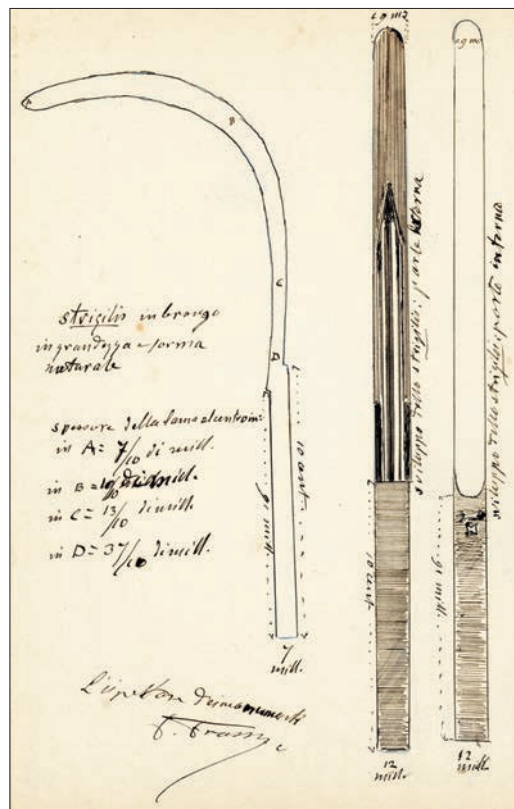 A
B
C
D
strigilis in bronzo
in grandezza e forma
naturale
spessore della lama al centro in:
in A = 7/10 di mill.
in B = 10/10 di mill.
in C = 13/10 di mill.
in D = 37/10 di mill.
91 mill.
10 cent.
7
mill.
L'ispettore dei monumenti
sviluppo dello strigilis: parte esterna
10 cent.
12
mill.
sviluppo dello strigilis, parte interna
91 mill.
12
mill.